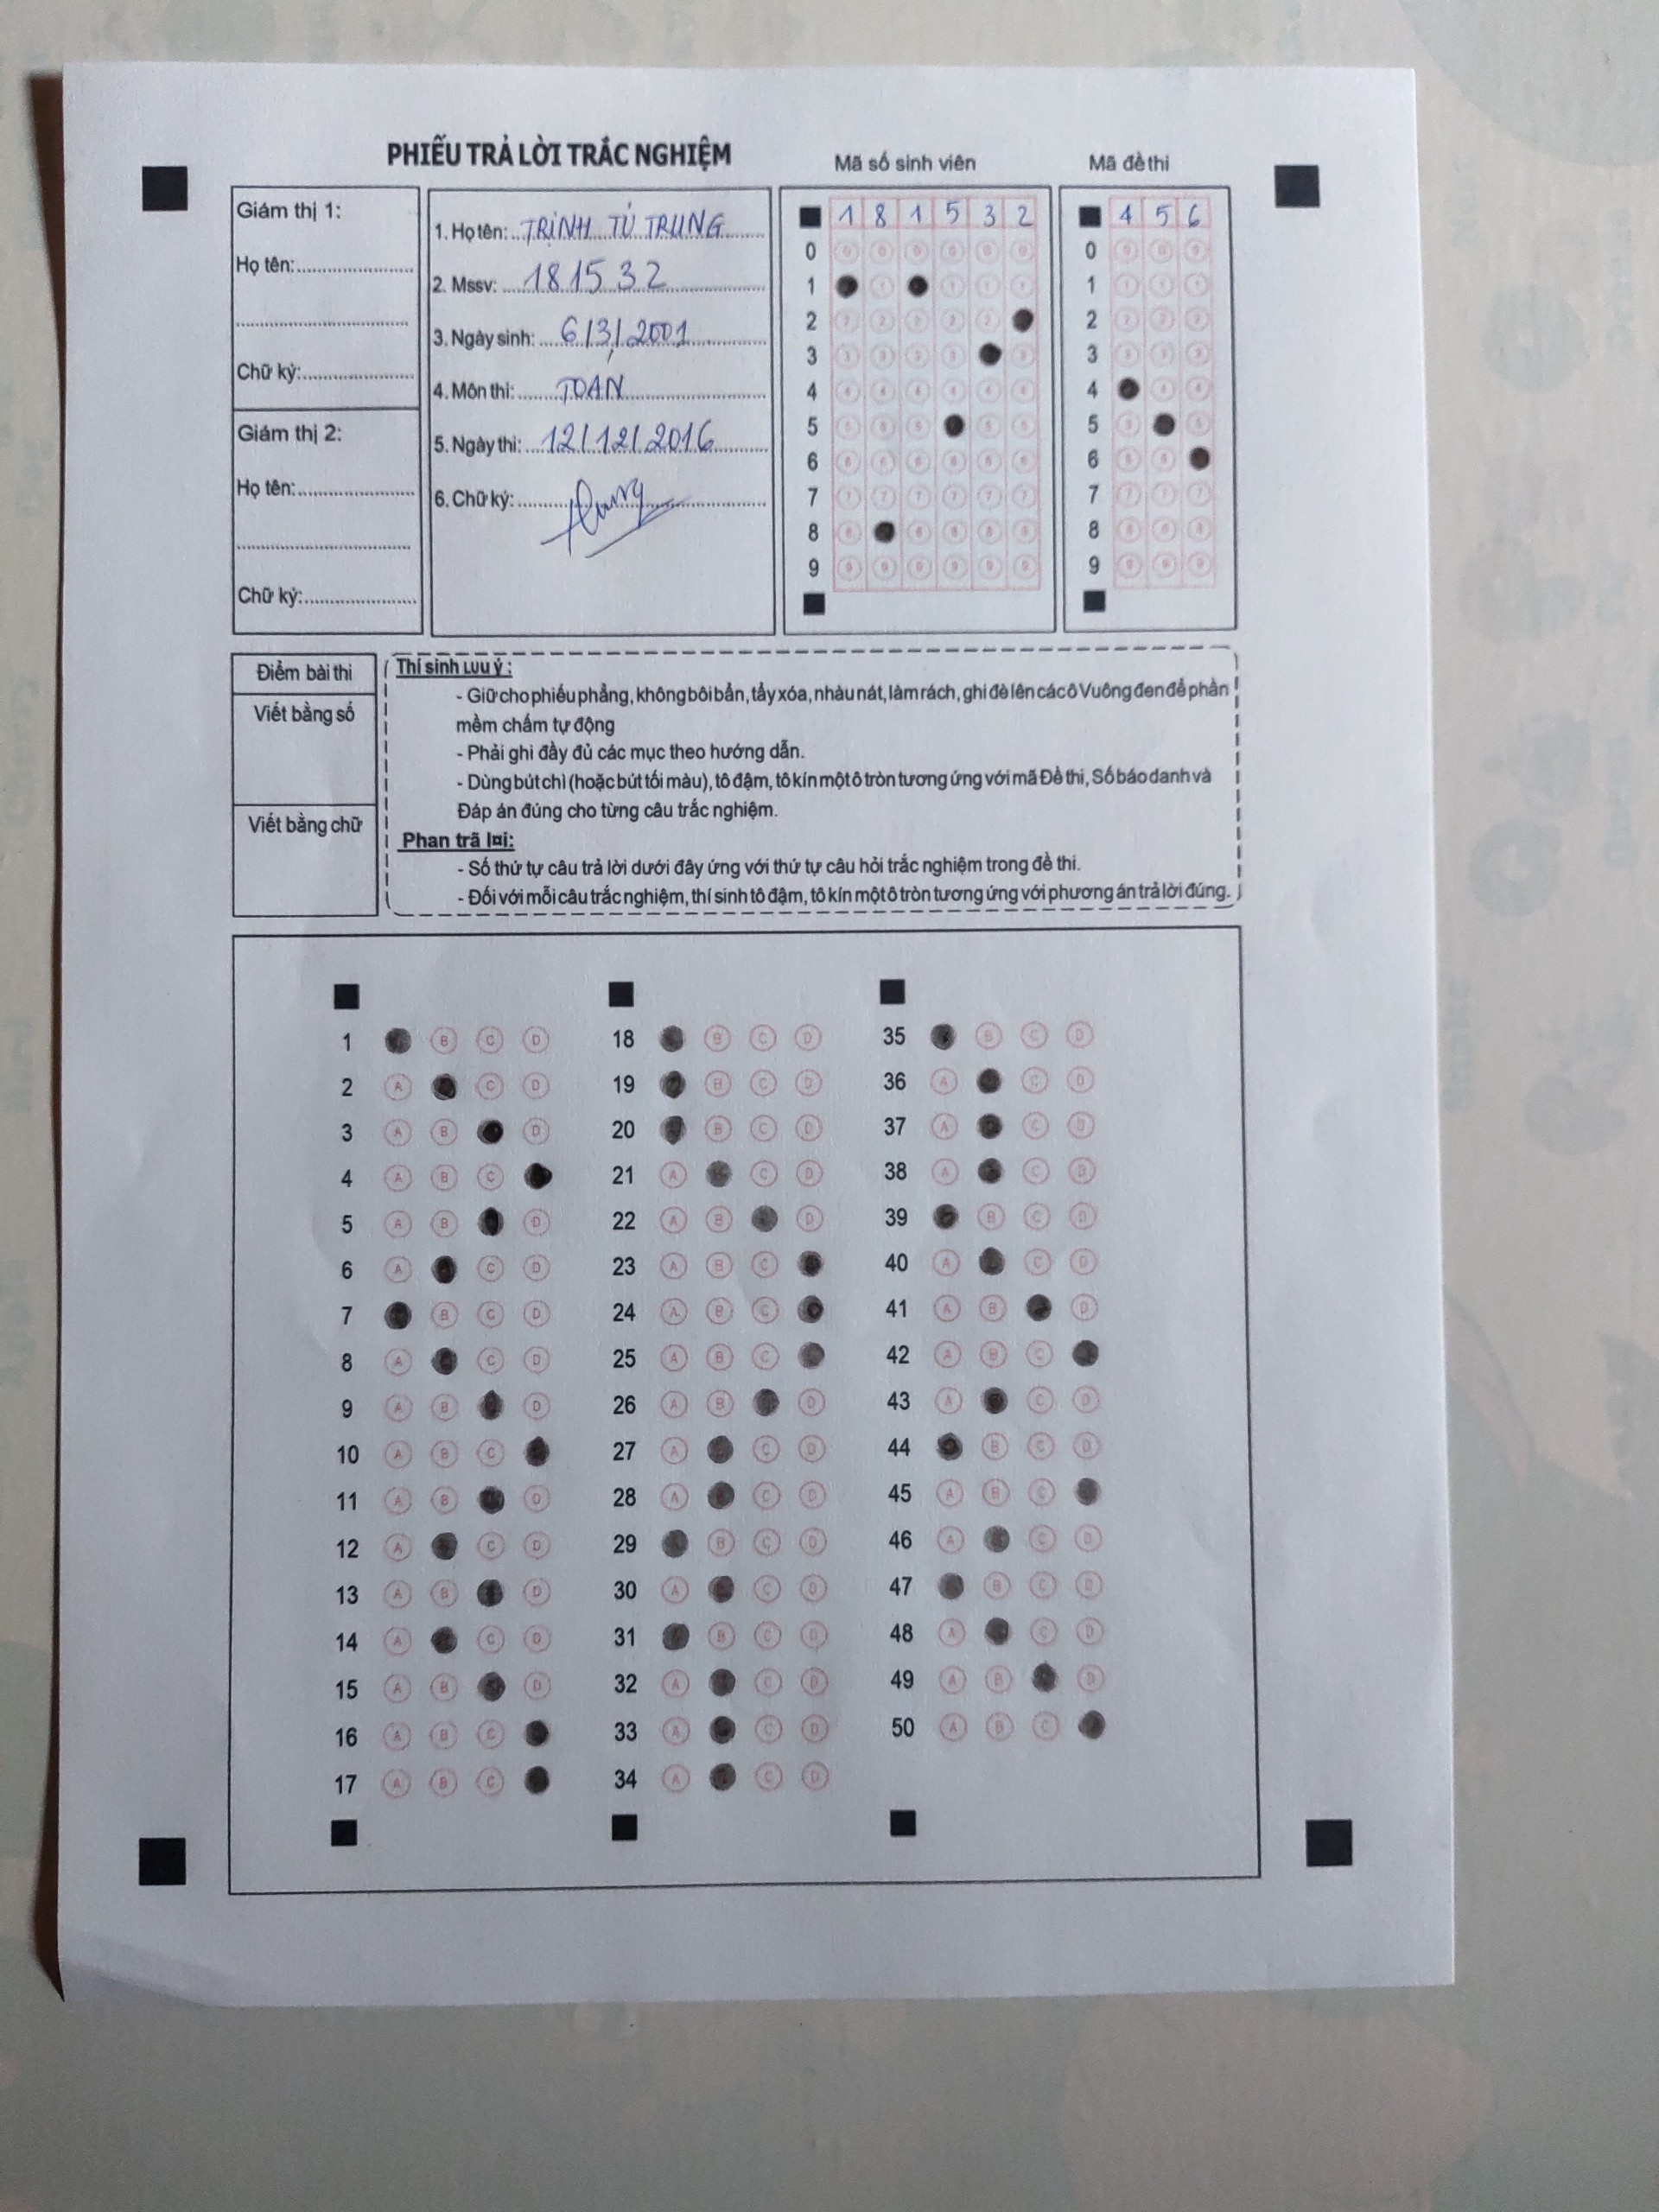 PHIẾU TRẢ LỜI TRẮC NGHIỆM
Mã số sinh viên
Mã đề thi
Giám thị 1:
Họ tên:
Chữ ký:
Giám thị 2:
Họ tên:
Chữ ký:
1. Họ tên: TRỊNH TÚ TRUNG
2. Mssv: 181532
3. Ngày sinh: 6/3/2001
4. Môn thi: TOÁN
5. Ngày thi: 12/12/2016
6. Chữ ký:
1 8 1 5 3 2
0
1
2
3
4
5
6
7
8
9
4 5 6
0
1
2
3
4
5
6
7
8
9
Điểm bài thi
Viết bằng số
Viết bằng chữ
Thí sinh Lưu ý :
- Giữ cho phiếu phẳng, không bôi bẩn, tẩy xóa, nhàu nát, làm rách, ghi đè lên các ô Vuông đen để phần
mềm chấm tự động
- Phải ghi đầy đủ các mục theo hướng dẫn.
- Dùng bút chì (hoặc bút tối màu), tô đậm, tô kín một ô tròn tương ứng với mã Đề thi, Số báo danh và
Đáp án đúng cho từng câu trắc nghiệm.
Phan trã lời:
- Số thứ tự câu trả lời dưới đây ứng với thứ tự câu hỏi trắc nghiệm trong đề thi.
- Đối với mỗi câu trắc nghiệm, thí sinh tô đậm, tô kín một ô tròn tương ứng với phương án trả lời đúng.
1 B C D
2 A C D
3 A B D
4 A B C
5 A B D
6 A C D
7 B C D
8 A C D
9 A B D
10 A B C
11 A B D
12 A C D
13 A B D
14 A C D
15 A B D
16 A B C
17 A B C
18 B C D
19 B C D
20 B C D
21 A C D
22 A B D
23 A B C
24 A B C
25 A B C
26 A B D
27 A C D
28 A C D
29 B C D
30 A C D
31 B C D
32 A C D
33 A C D
34 A C D
35 B C D
36 A C D
37 A C D
38 A C D
39 B C D
40 A C D
41 A B D
42 A B C
43 A C D
44 B C D
45 A B C
46 A C D
47 B C D
48 A C D
49 A B D
50 A B C